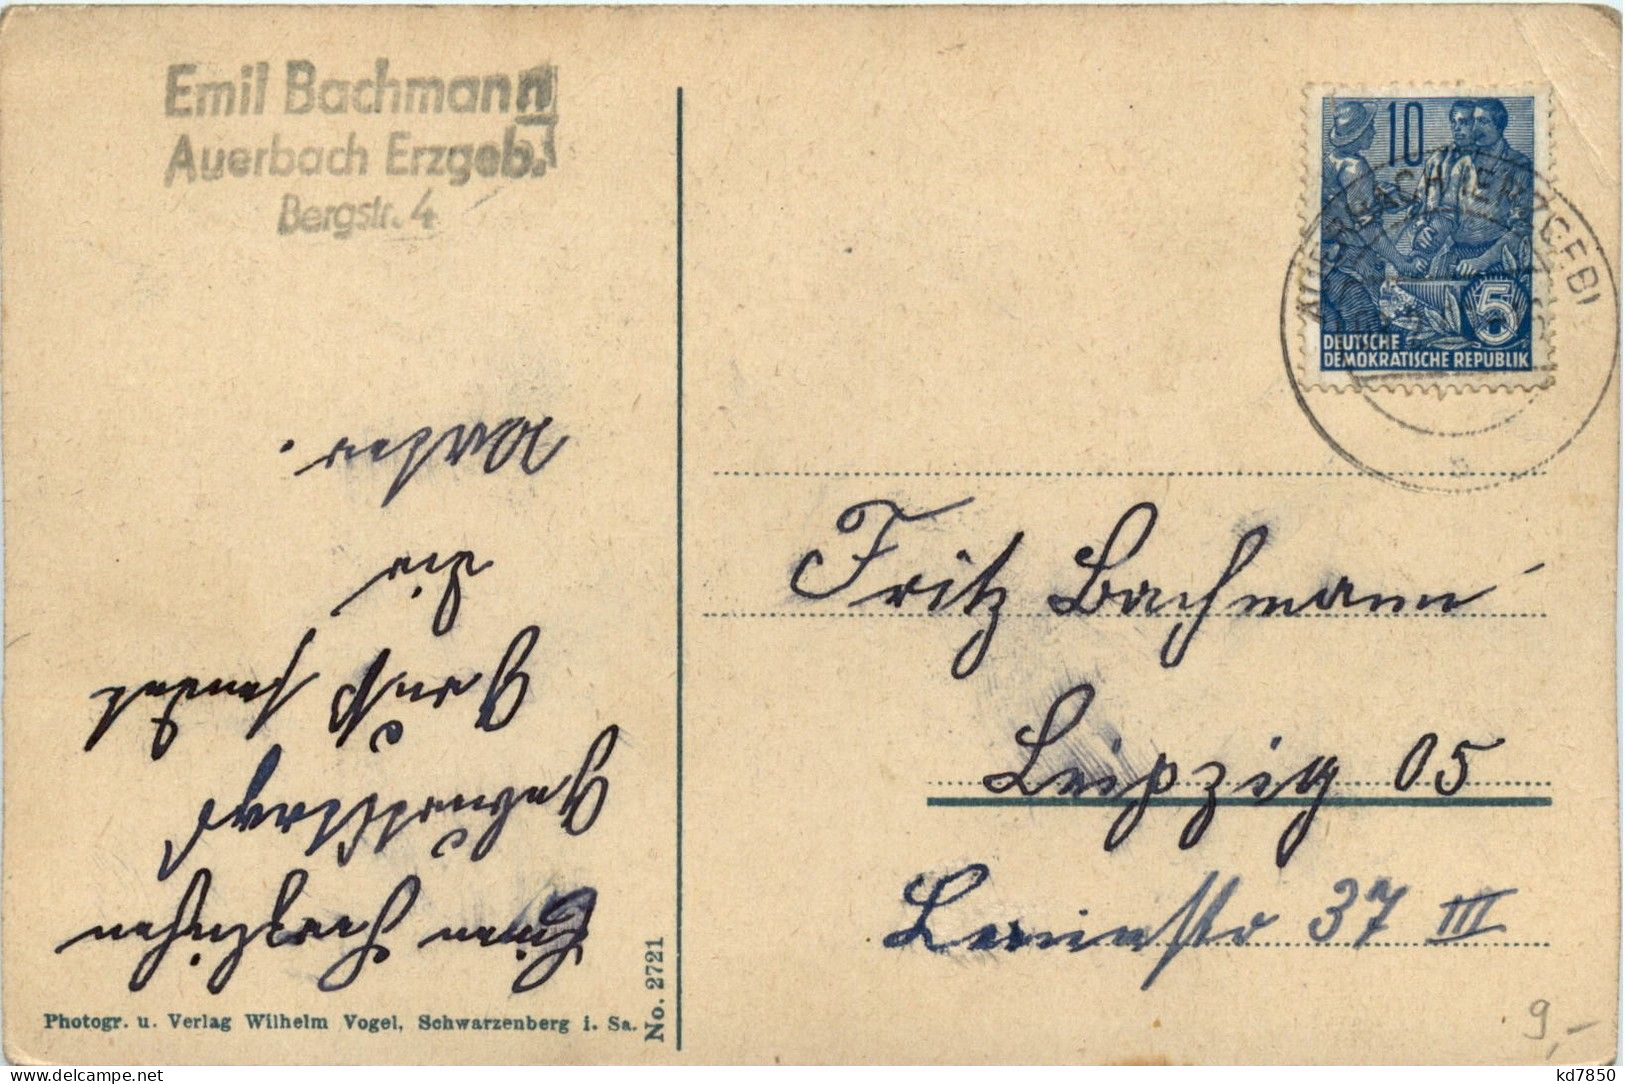 Emil Bachmann
Auerbach Erzgeb.
Bergstr. 4
10
AUERBACH (ERZGEB)
5
DEUTSCHE
DEMOKRATISCHE REPUBLIK
Einen herzlichen
Geburtstags
Gruß sendet
dir
Vater.
Fritz Bachmann
Leipzig 05
37 III
Photogr. u. Verlag Wilhelm Vogel, Schwarzenberg i. Sa.
No. 2721
9,-
kd7850